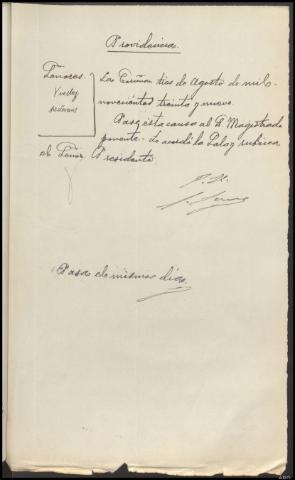 Providencia.
Señores. La Coruña tres de Agosto de mil
novecientos treinta y nueve.
Pase esta causa al S. Magistrado
ponente. Lo acordó la Sala y rubrica
el Señor Presidente
Pasa el mismo día.